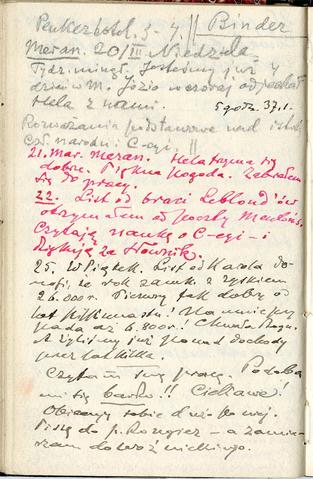 Penkerhohl. 5-4. || Binder
Meran. 20/III Niedziela.
Tydz. minął. Jesteśmy już 4
dzień w M. Józio wczoraj odjechał
Hela z nami. 5 godz. 37.1.
Rozważania podstawowe nad istotą
narodu i C-cyi. ||
21. Mar. Meran. Hela trzyma się
dobrze. Piękna pogoda. Zabrałem
się do pracy.
22. List od braci Leblond'ów
otrzymałem od poczty
Czytają naukę o C-cyi - i
dziękują za słownik.
25. W Piątek. List od Karola do-
nosi, że rok zamk. z zyskiem
26.000 r. Pierwszy tak dobry od
lat kilkunastu! Na mnie przy-
pada aż 6.800 r.! Chwała Bogu.
A żyliśmy już ponad dochody
przez lat kilka.
Czytam swą pracę. Podoba
mi się bardzo!! Ciekawe!
Obiecuję sobie dużo po niej.
Piszę do p. - a zamie-
rzam do